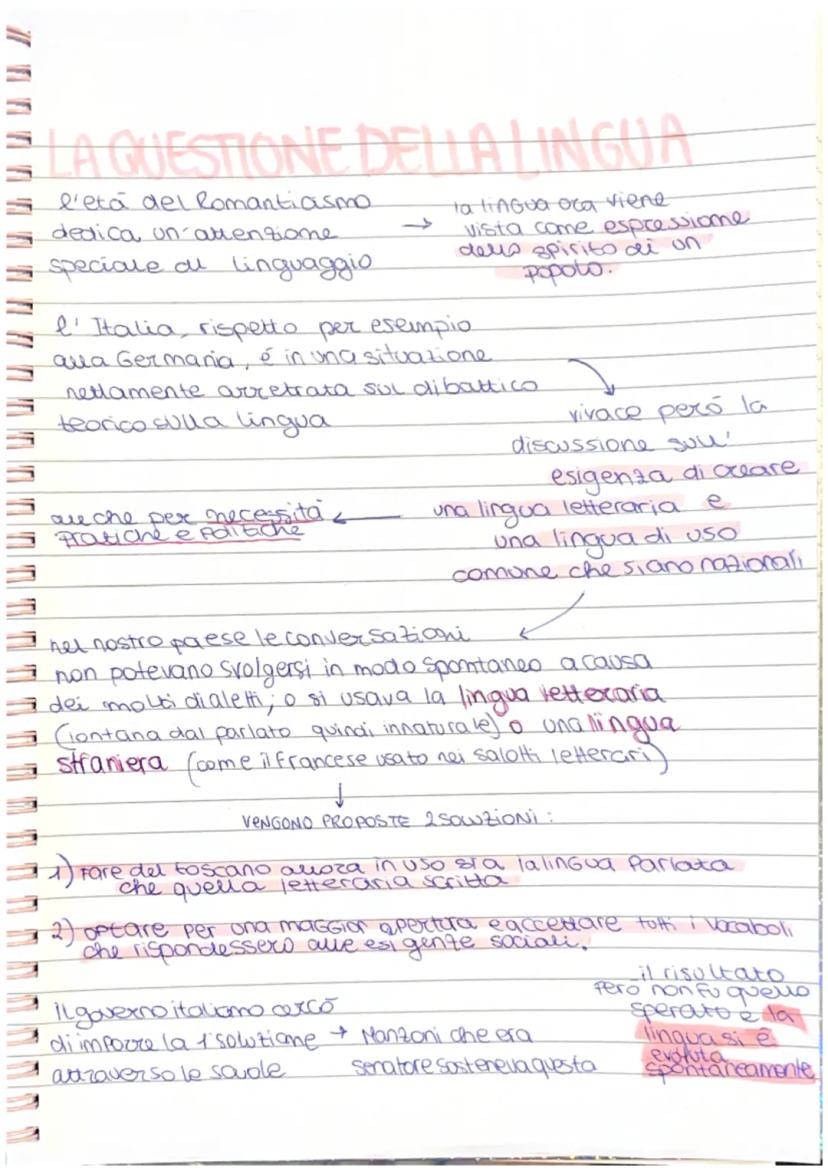 LA QUESTIONE DELLA LINGUA
l'etá del Romanticismo
dedica un'attenzione
speciale al linguaggio
→ la lingua ora viene
vista come espressione
dello spirito di un
popolo.
l'Italia, rispetto per esempio
alla Germania, é in una situazione
nettamente arretrata sul dibattico
teorico sulla lingua
vivace peró la
discussione sull'
esigenza di creare
una lingua letteraria e
una lingua di uso
comune che siano nazionali
anche per necessitá
pratiche e politiche
nel nostro paese le conversazioni
non potevano svolgersi in modo spontaneo a causa
dei molti dialetti; o si usava la lingua letteraria
(lontana dal parlato quindi innaturale) o una lingua
straniera (come il francese usato nei salotti letterari)
VENGONO PROPOSTE 2 SOLUZIONI:
1) Fare del toscano allora in uso sia la lingua parlata
che quella letteraria scritta
2) optare per una maggior apertura e accettare tutti i vocaboli
che rispondessero alle esigenze sociali.
il governo italiano cercó
di imporre la 1 soluzione → Manzoni che era
attraverso le scuole senatore sosteneva questa
il risultato
peró non fu quello
sperato e la
lingua si é
evoluta
spontaneamente